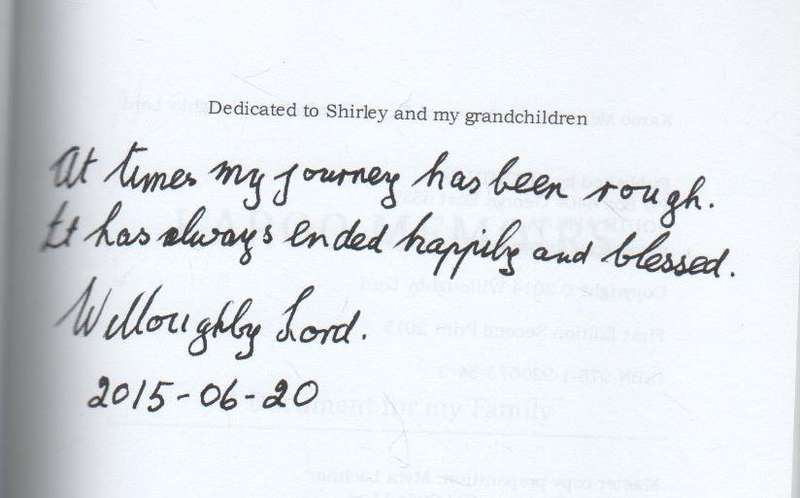 Dedicated to Shirley and my grandchildren
At times my journey has been rough.
It has always ended happily and blessed.
Willoughby Lord.
2015-06-20